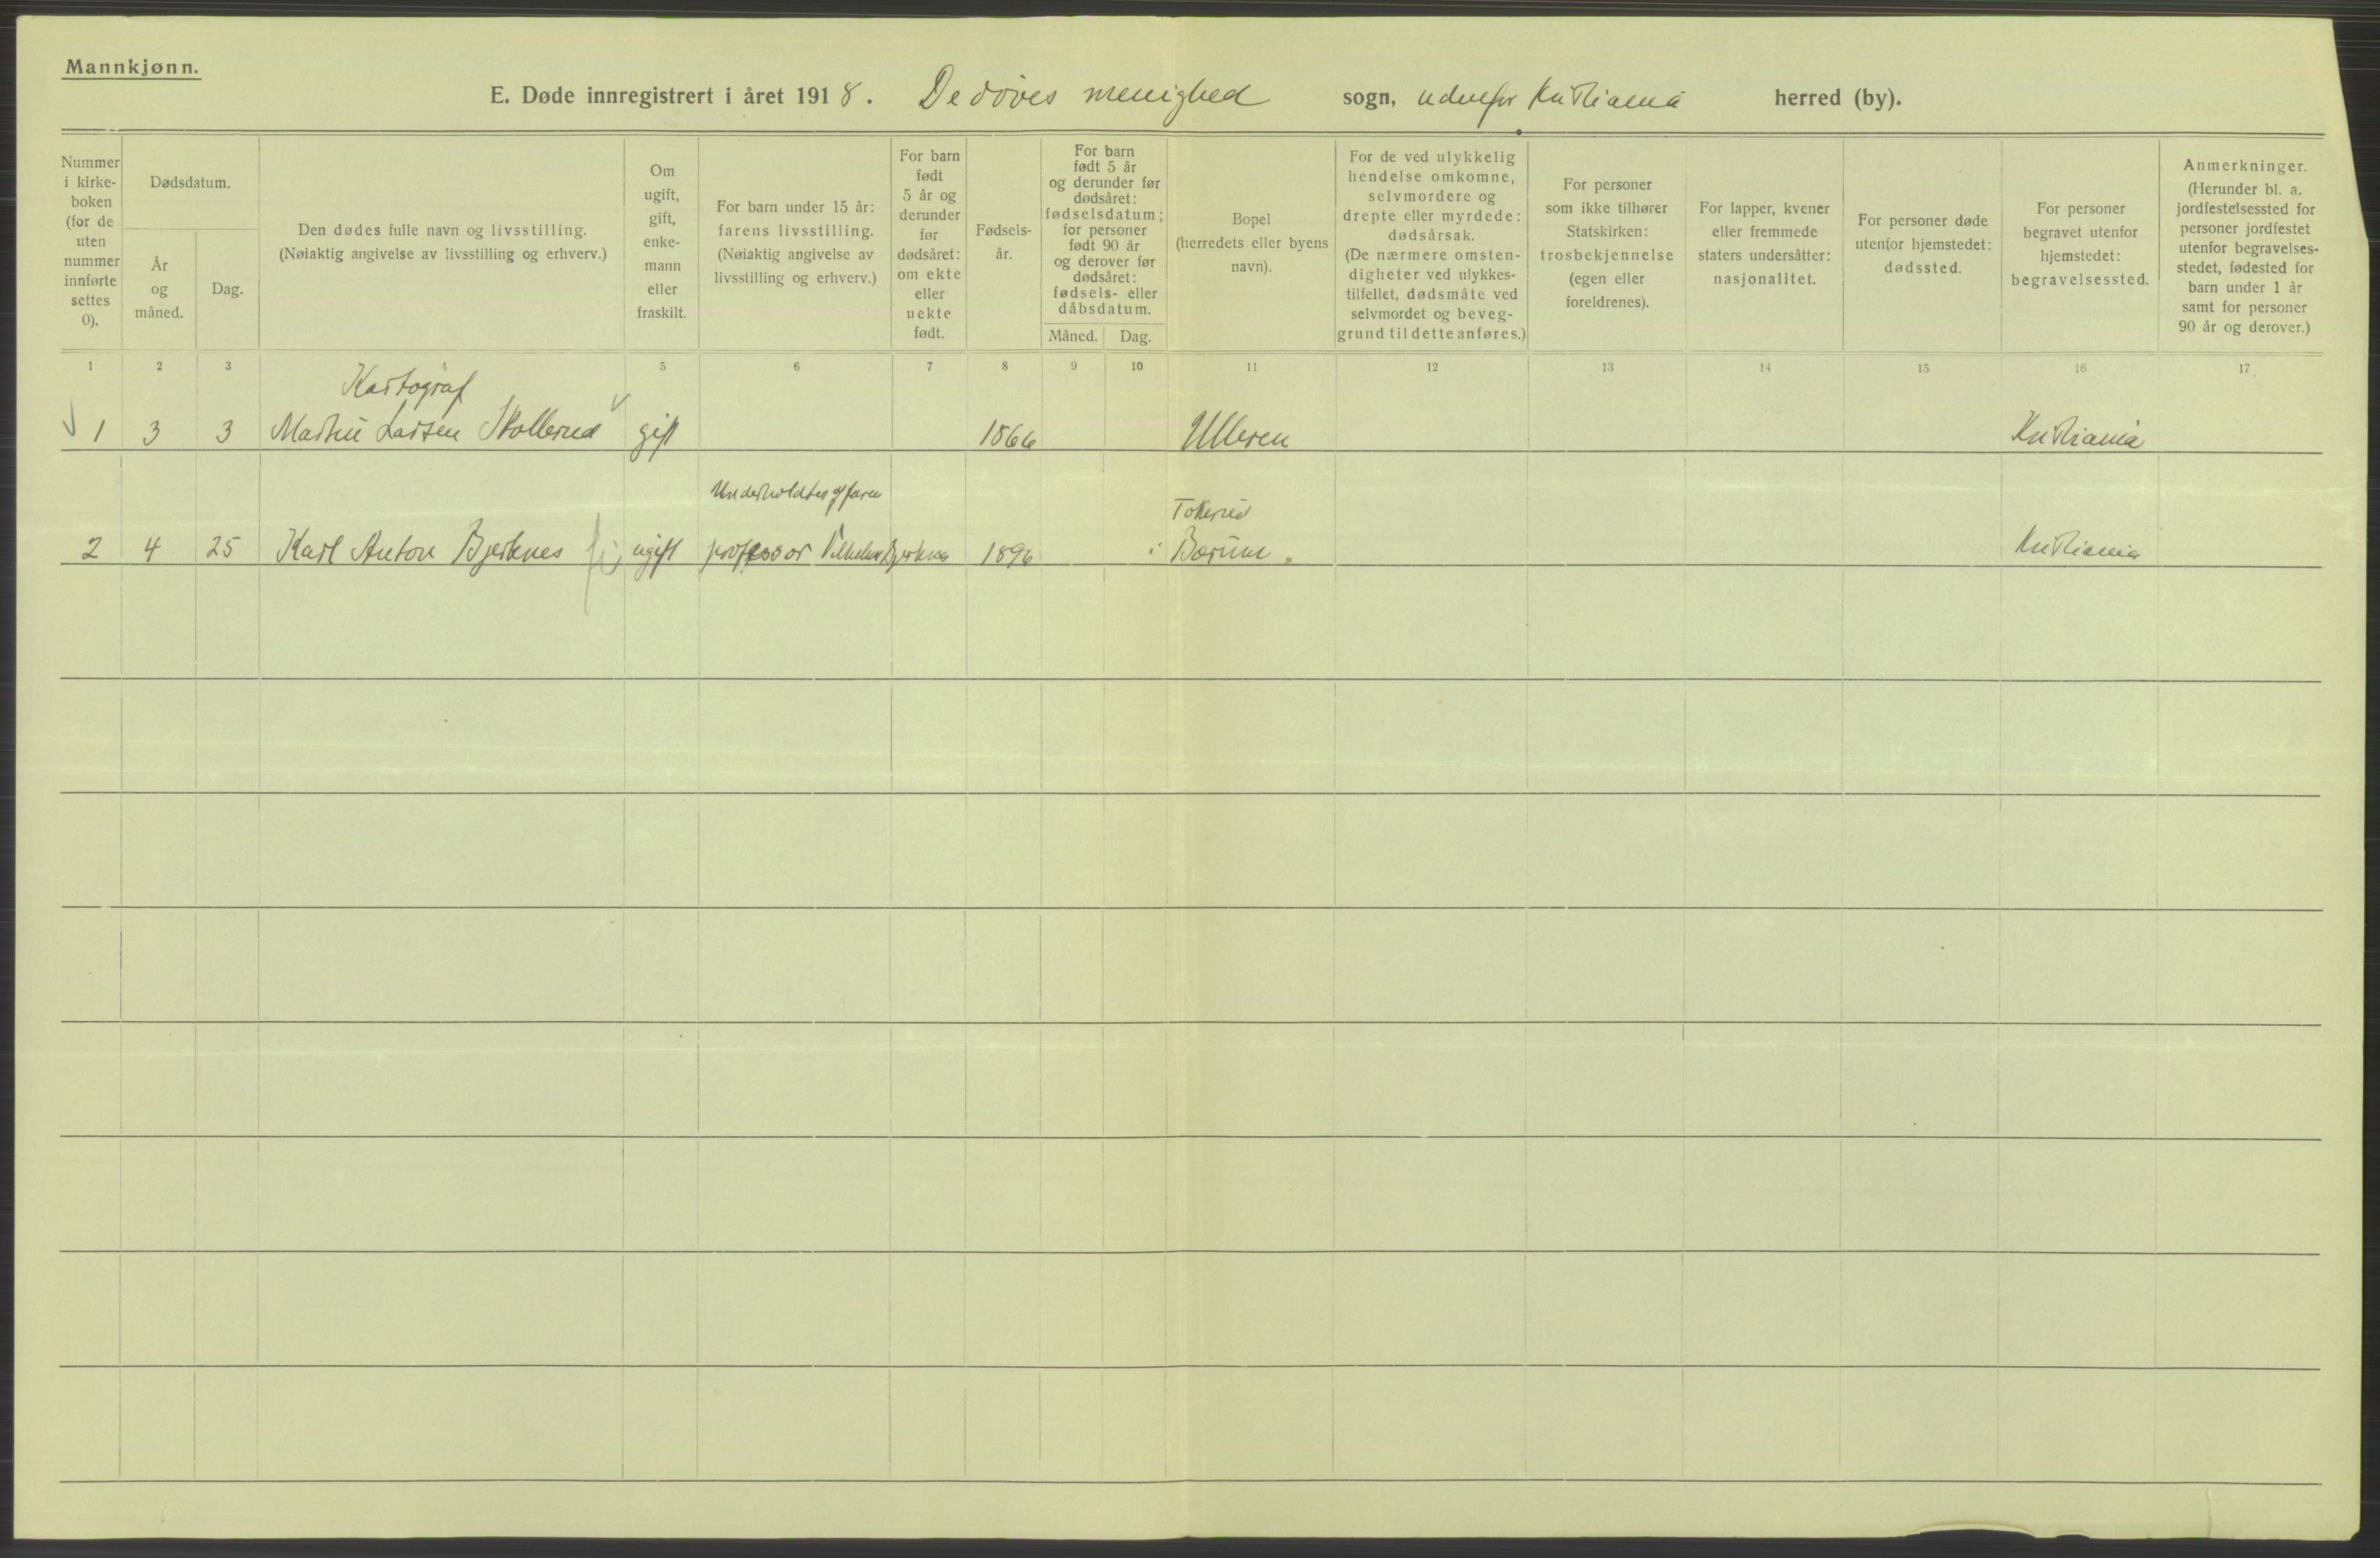 Mannkjønn.
E. Døde innregistrert i året 1918. De døves menighed sogn, udenfor Kristiania herred (by).
Nummer i kirke- boken (for de uten nummer innførte settes 0).
Dødsdatum.
År og måned.
Dag.
Den dødes fulle navn og livsstilling.
(Nøiaktig angivelse av livsstilling og erhverv.)
Om ugift, gift, enke- mann eller fraskilt.
For barn under 15 år: farens livsstilling.
(Nøiaktig angivelse av livsstilling og erhverv.)
For barn født 5 år og derunder før dødsåret: om ekte eller uekte født.
Fødsels- år.
For barn født 5 år og derunder før dødsåret: fødselsdatum; for personer født 90 år og derover før dødsåret: fødsels- eller dåbsdatum.
Måned. Dag.
Bopel (herredets eller byens navn).
For de ved ulykkelig hendelse omkomne, selvmordere og drepte eller myrdede: dødsårsak.
(De nærmere omsten- digheter ved ulykkes- tilfellet, dødsmåte ved selvmordet og beveg- grund til dette anføres.)
For personer som ikke tilhører Statskirken: trosbekjennelse (egen eller foreldrenes).
For lapper, kvener eller fremmede staters undersåtter: nasjonalitet.
For personer døde utenfor hjemstedet: dødssted.
For personer begravet utenfor hjemstedet: begravelsessted.
Anmerkninger.
(Herunder bl. a. jordfestelsessted for personer jordfestet utenfor begravelses- stedet, fødested for barn under 1 år samt for personer 90 år og derover.)
1 2 3 5 6 7 8 9 10 11 12 13 14 15 16 17.
Kartograf
1 3 3 Martin Larsen Skollerud gift 1866 Ulleren Kristiania
Underholdtes af faren
Tokerud
2 4 25 Karl Anton Bjerknes ugift professor Vilhelm Bjerknes 1896 i Bærum. Kristiania